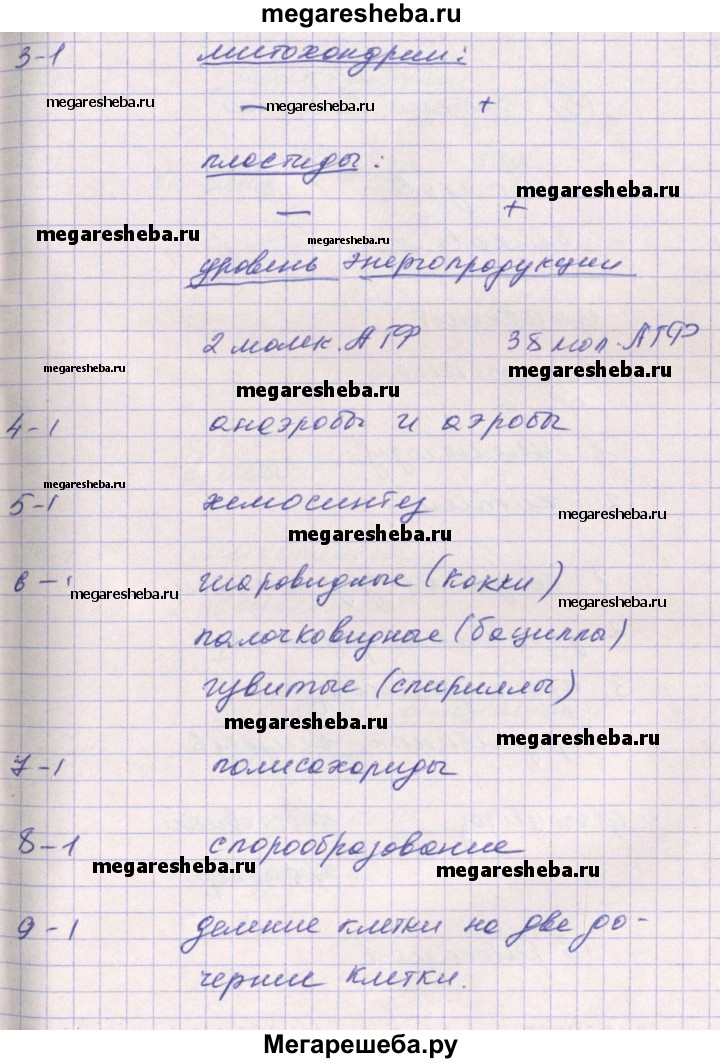 megaresheba.ru
3-1 митохондрии:
megaresheba.ru — megaresheba.ru +
пластиды:
megaresheba.ru
— +
megaresheba.ru megaresheba.ru
уровень энергопродукции
2 молек. АТФ 38 мол. АТФ
megaresheba.ru megaresheba.ru
megaresheba.ru
4-1 анаэробы и аэробы
megaresheba.ru
5-1 хемосинтез
megaresheba.ru
megaresheba.ru
6-1 шаровидные (кокки)
megaresheba.ru megaresheba.ru
палочковидные (бациллы)
извитые (спириллы)
megaresheba.ru
megaresheba.ru
7-1 полисахариды
8-1 спорообразование
megaresheba.ru megaresheba.ru
9-1 деление клетки на две до-
черние клетки.
Мегарешеба.ру